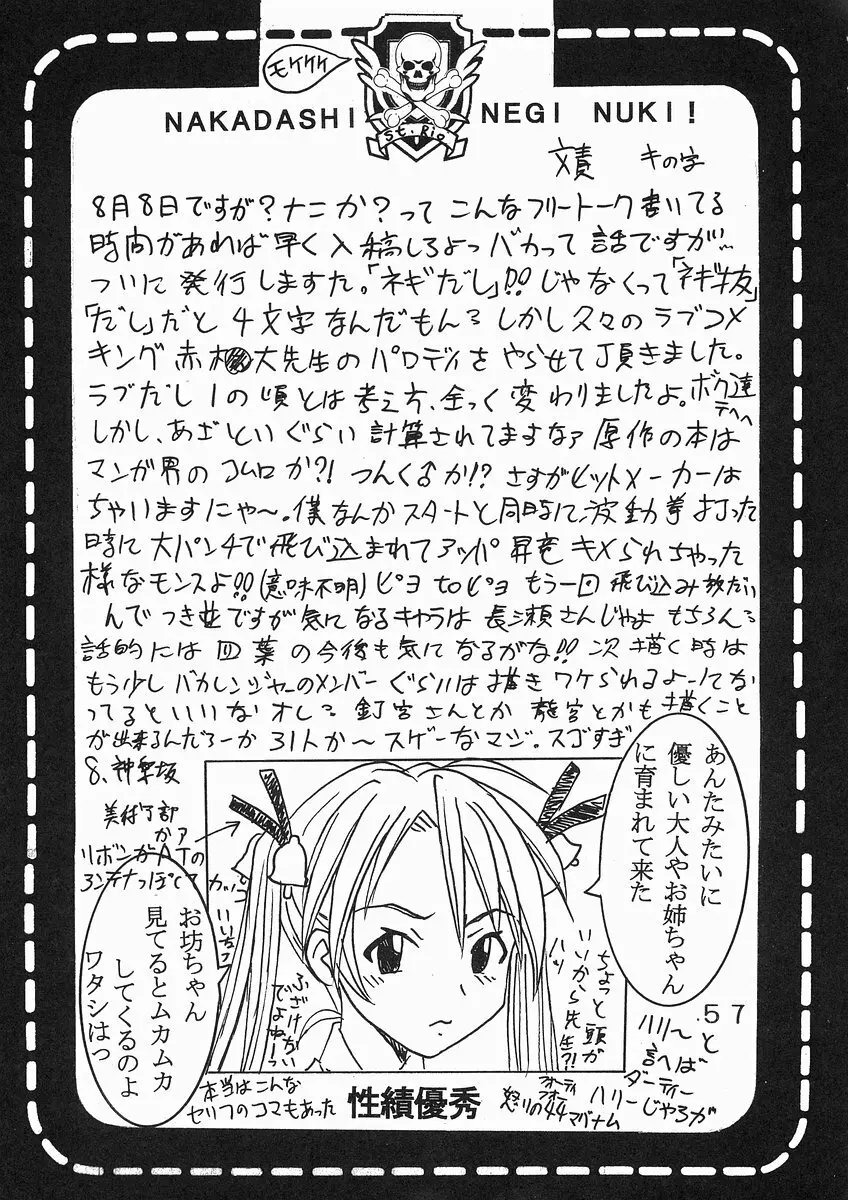 モケケケ
NAKADASHI NEGI NUKI!
St. Rio
文責 キの字
8月8日ですが?ナニか?って こんなフリートーク書いてる
時間があれば早く入稿しろよっバカって話ですが…
ついに発行しますた。「ネギだし」!!じゃなくって「ネギ抜」
「だし」だと4文字なんだもん しかし久々のラブコメ
キング赤松大先生のパロディをやらせて頂きました。
ラブだし1の頃とは考え方、全っく変わりましたよ。ボク達
テヘヘ
しかし、あざといぐらい計算されてますなァ原作の本は
マンガ界のコムロか?!つんく♂か!?さすがヒットメーカーは
ちゃいますにゃ~。僕なんかスタートと同時に波動拳打った
時に大パンチで飛び込まれてアッパ昇竜キメられちゃった
様なモンスよ!!(意味不明)ピヨtoピヨ もう一回飛び込み放だい
んでつき並ですが気になるキャラは長瀬さんじゃよもちろん
話的には四葉の今後も気になるがな!!次描く時は
もう少しバカレンジャーのメンバーぐらいは描きワケられるよーにな
ってるといいなオレ 釘宮さんとか龍宮とかも描くこと
が出来るんだろーか31人か~スゲーなマジ。スゴすぎ
8.神楽坂
美術部
かァ
リボンがATの
アンテナっぽくて
カッコ
いいっ
あんたみたいに
優しい大人やお姉ちゃん
に育まれて来た
お坊ちゃん
見てるとムカムカ
してくるのよ
ワタシはっ
ちょっと頭が
いいから先生?!
ハッ
ふざけない
でよねーっ
本当はこんな
セリフのコマもあった
性績優秀
57
ハリーと
言へば
ダーティー
ハリーじゃろが
フォーティ
フォー
怒りの44マグナム